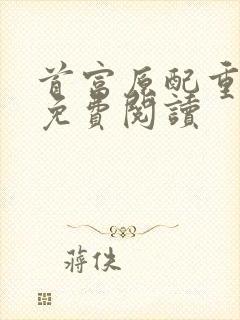 首富原配重
免費閱讀
蔣佚